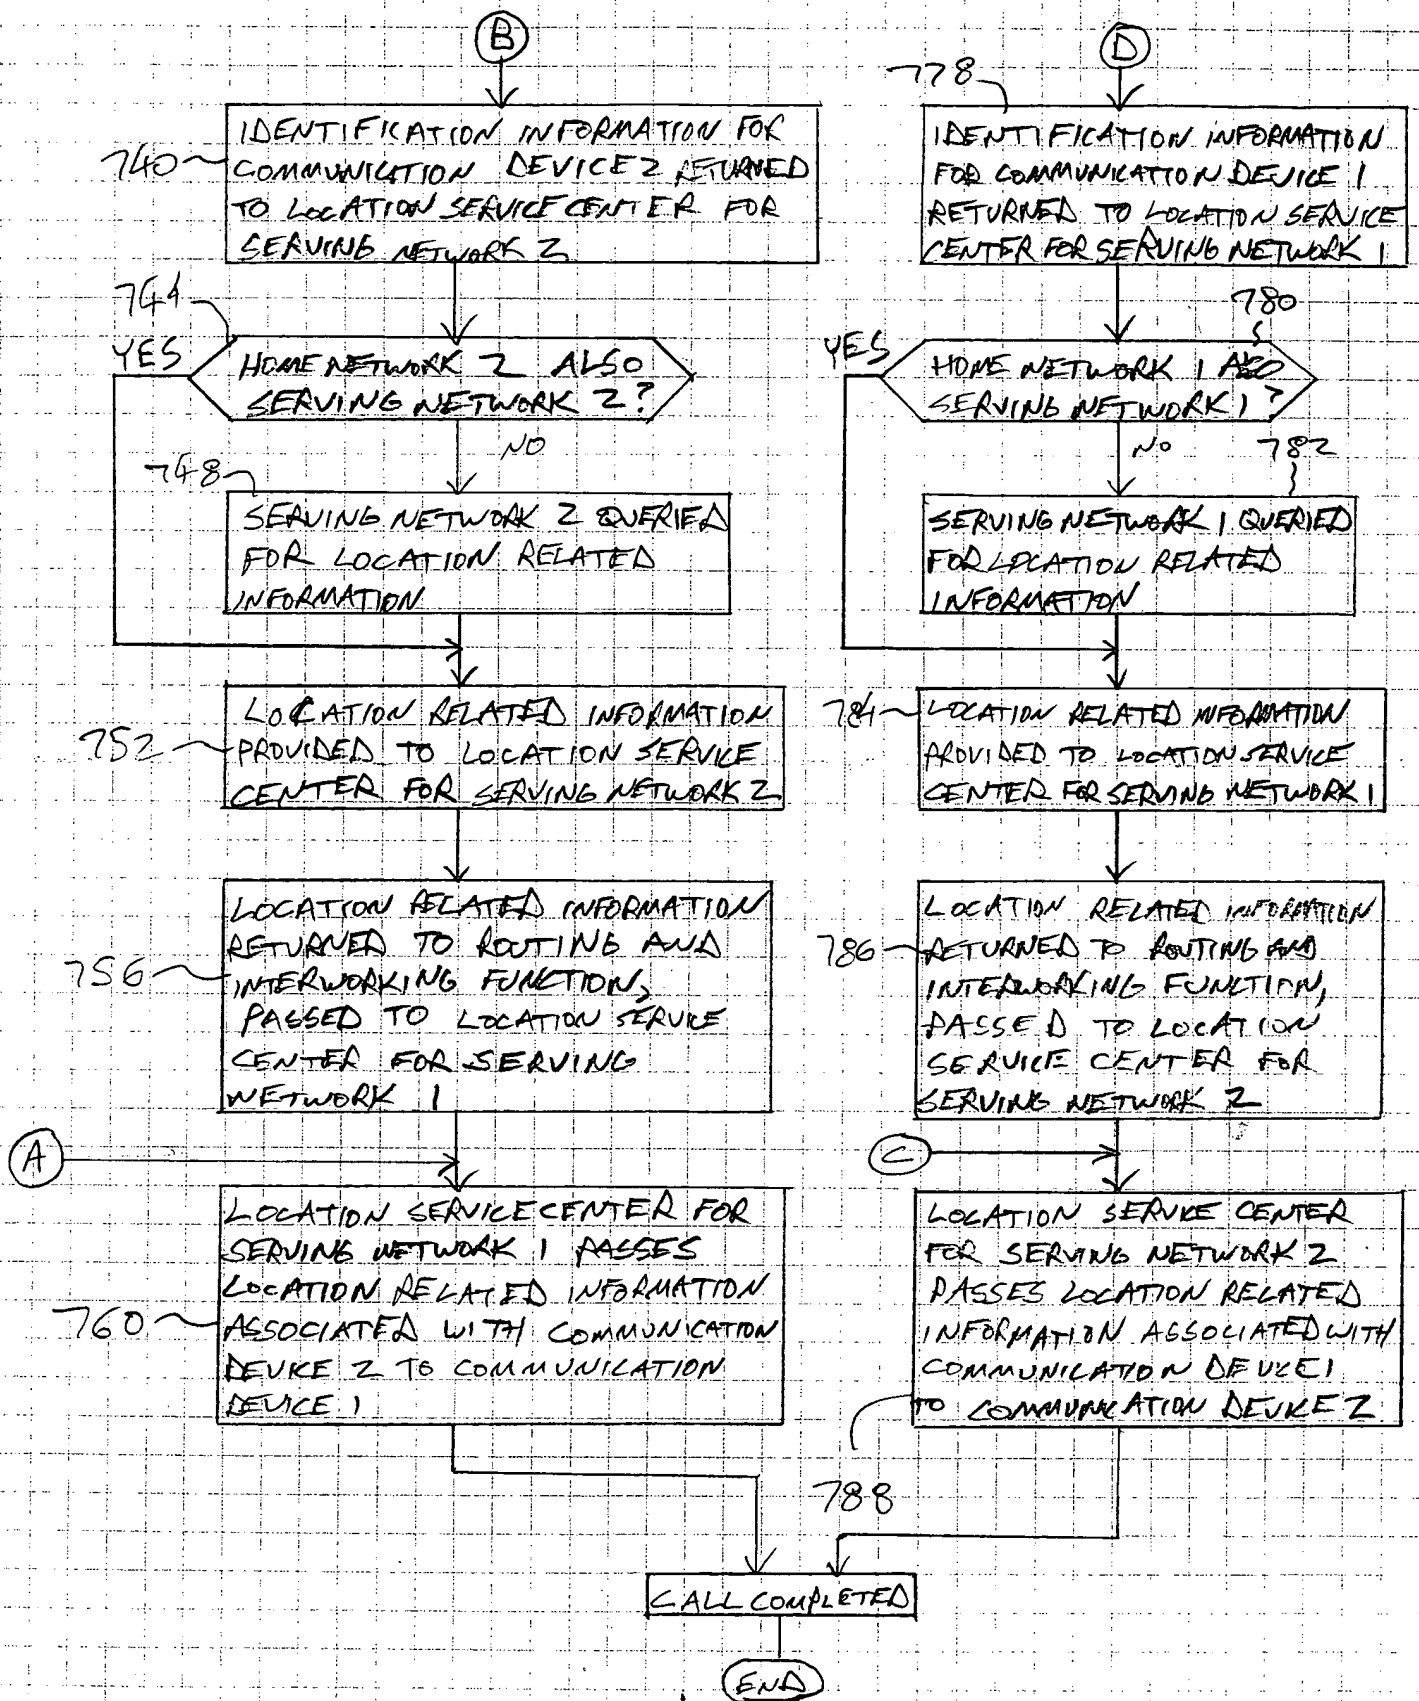 B
740
IDENTIFICATION INFORMATION FOR
COMMUNICATION DEVICE 2 RETURNED
TO LOCATION SERVICE CENTER FOR
SERVING NETWORK 2
744
YES
HOME NETWORK 2 ALSO
SERVING NETWORK 2?
NO
748
SERVING NETWORK 2 QUERIED
FOR LOCATION RELATED
INFORMATION
752
LOCATION RELATED INFORMATION
PROVIDED TO LOCATION SERVICE
CENTER FOR SERVING NETWORK 2
756
LOCATION RELATED INFORMATION
RETURNED TO ROUTING AND
INTERWORKING FUNCTION,
PASSED TO LOCATION SERVICE
CENTER FOR SERVING
NETWORK 1
A
760
LOCATION SERVICE CENTER FOR
SERVING NETWORK 1 PASSES
LOCATION RELATED INFORMATION
ASSOCIATED WITH COMMUNICATION
DEVICE 2 TO COMMUNICATION
DEVICE 1
D
778
IDENTIFICATION INFORMATION
FOR COMMUNICATION DEVICE 1
RETURNED TO LOCATION SERVICE
CENTER FOR SERVING NETWORK 1
780
YES
HOME NETWORK 1 ALSO
SERVING NETWORK 1?
NO
782
SERVING NETWORK 1 QUERIED
FOR LOCATION RELATED
INFORMATION
784
LOCATION RELATED INFORMATION
PROVIDED TO LOCATION SERVICE
CENTER FOR SERVING NETWORK 1
786
LOCATION RELATED INFORMATION
RETURNED TO ROUTING AND
INTERWORKING FUNCTION,
PASSED TO LOCATION
SERVICE CENTER FOR
SERVING NETWORK 2
C
LOCATION SERVICE CENTER
FOR SERVING NETWORK 2
PASSES LOCATION RELATED
INFORMATION ASSOCIATED WITH
COMMUNICATION DEVICE 1
TO COMMUNICATION DEVICE 2
788
CALL COMPLETED
END